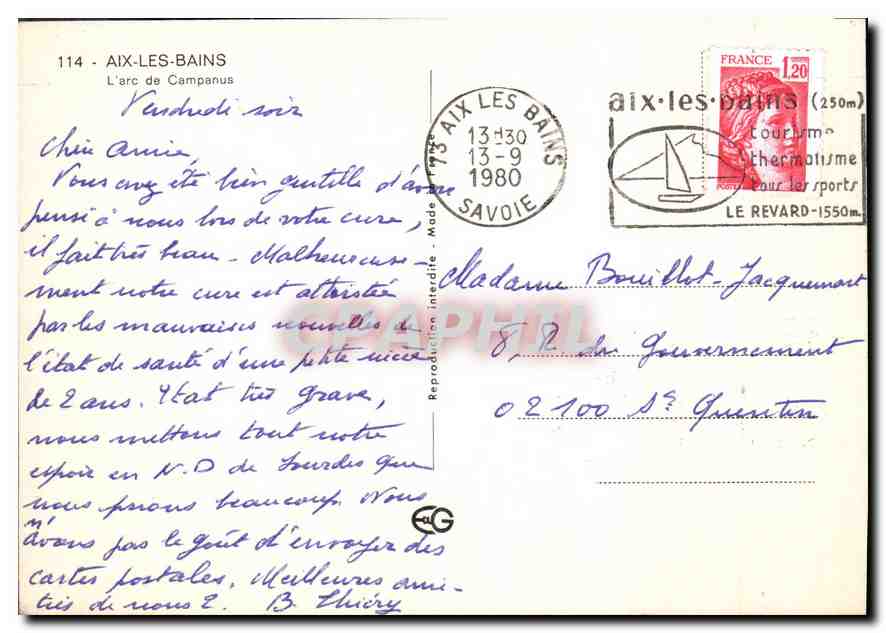 114 - AIX-LES-BAINS
L'arc de Campanus
Vendredi soir
Chère Annie,
Vous avez été bien gentille d'avoir
pensé à nous lors de votre cure,
il fait très beau - Malheureuse-
ment notre cure est attristée
par les mauvaises nouvelles de
l'état de santé d'une petite nièce
de 2 ans. Etat très grave,
nous mettons tout notre
espoir en N.D de Lourdes que
nous prions beaucoup. Nous
n'avons pas le goût d'envoyer des
cartes postales. Meilleures ami-
tiés de nous 2. B. Thiéry
Reproduction interdite - Made in France
EG
73 AIX LES BAINS
13H30
13-9
1980
SAVOIE
FRANCE 1,20
POSTES
aix·les·bains (250m)
tourisme
thermalisme
tous les sports
LE REVARD-1550m.
Madame Bouillot-Jacquemart
8, R du Gouvernement
02100 St Quentin
CPAPHIL